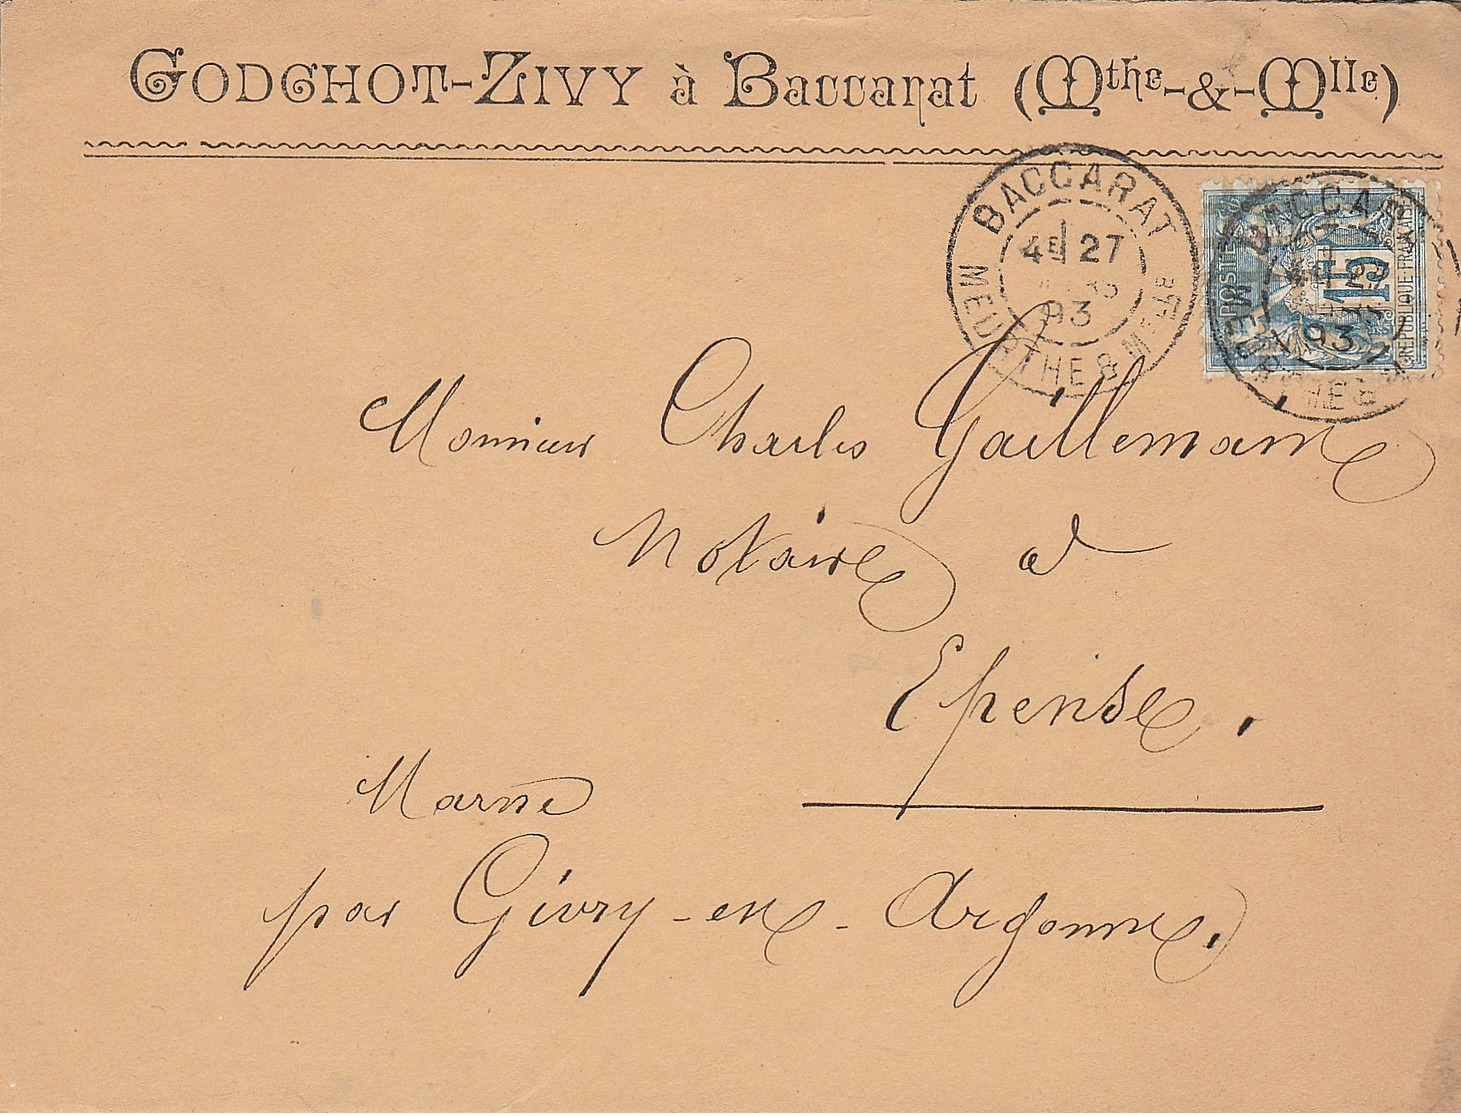 GODCHOT-ZIVY à Baccarat (Mthe-&-Mlle)
BACCARAT
4E 27
93
MEURTHE & MELLE
POSTES
15
REPUBLIQUE FRANCAISE
BACCARAT
4E 27
93
Monsieur Charles Gaillemain
Notaire à
Epense.
Marne
par Givry-en-Argonne.